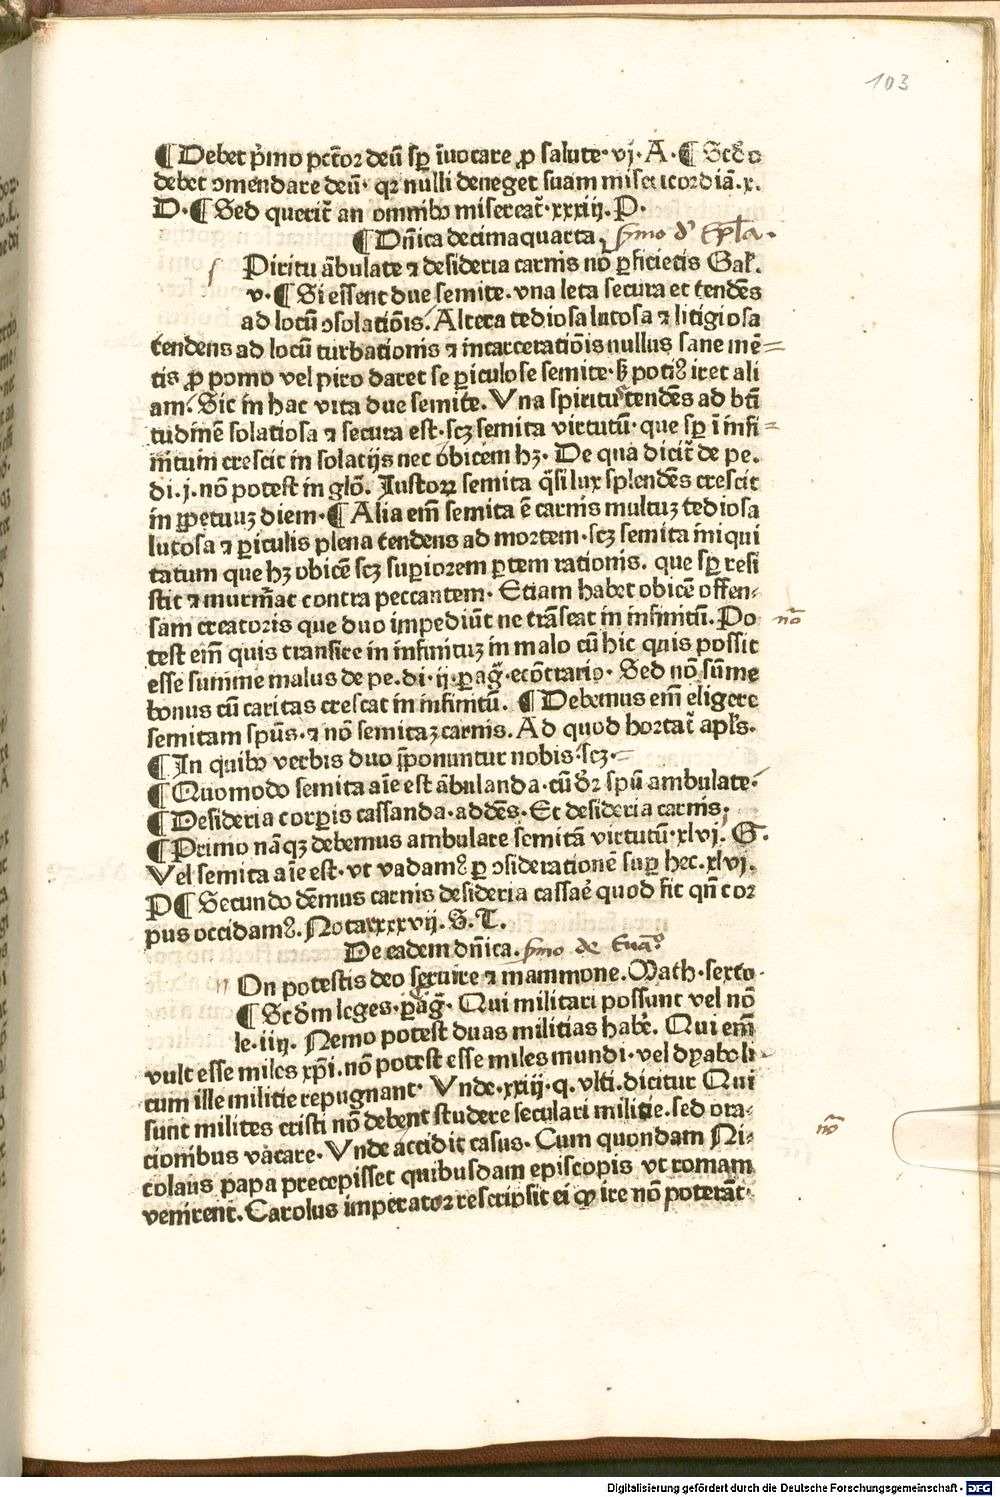 103
¶ Debet pͥmo pctõr deũ sp̱ ĩuocare ꝓ salute · vj · A · ¶ Scd̾o
debet ↄmendare deũ · qꝛ nulli deneget suam misericordiã. x.
D · ¶ Sed querit᷑ an omnibꝰ misereat᷑ · xxxiij. P ·
¶ Dñica decimaquarta, s̃mo d' Ep̃la ·
s Piritu ãbulate ⁊ desideria carnis nõ ꝑficietis Gal̃.
v · ¶ Si essent due semite · vna leta secura et tendẽs
ad locũ ↄsolatiõis. Altera tediosa lutosa ⁊ litigiosa
tendens ad locũ turbationis ⁊ incarceratiõis nullus sane mẽ=
tis ꝓ pomo vel piro daret se ꝑiculose semite · sꝫ potiꝰ iret ali
am. Sic in hac vita due semite. Vna spiritus tendẽs ad bt̃i
tudinẽ solatiosa ⁊ secura est · scꝫ semita virtutũ · que sp̱ ĩ infi=
nitum crescit in solatijs nec obicem hꝫ · De qua dicit᷑ de pe.
di. j. nõ potest in glõ. Iustoꝝ semita q̃si lux splendẽs crescit
in ꝑpetuuꝫ diem · ¶ Alia em̃ semita ẽ carnis multuꝫ tediosa
lutosa ⁊ ꝑiculis plena tendens ad mortem · scꝫ semita iniqui
tatum que hꝫ obicẽ scꝫ suꝑiorem ꝑtem rationis. que sp̱ resi
stit ⁊ murm̃at contra peccantem · Etiam habet obicẽ offen=
sam creatoris que duo impediũt ne trãseat in infinitũ. Po nõ
test em̃ quis transire in infinituꝫ in malo cũ hic quis possit
esse summe malus de pe. di · ij · ꝑag̃ · ecõtrario · Sed nõ sũme
bonus cũ caritas crescat in infinitũ. ¶ Debemus em̃ eligere
semitam spũs · ⁊ nõ semitaꝫ carnis. Ad quod hortat᷑ apl̃s.
¶ In quibꝰ verbis duo ꝓponuntur nobis · scꝫ ·
¶ Quomodo semita aĩe est ãbulanda · cũ dꝛ̃ spũ ambulate ·
¶ Desideria corꝑis cassanda · addẽs · Et desideria carnis ·
¶ Primo nãqꝫ debemus ambulare semitã virtutũ · xlvj. G.
Vel semita aĩe est · vt vadamꝰ ꝑ ↄsiderationẽ suꝑ hec. xlvj.
P ¶ Secundo dẽmus carnis desideria cassar̃ quod fit qñ cor
pus occidamꝰ. Nota xxxvij. S. T.
De eadem dñica. s̃mo de Euãº
n On potestis deo seruire ⁊ mammone. Math · sexto ·
¶ Scd̾m leges · ꝑag̃ · Qui militari possunt vel nõ
le. iiij. Nemo potest duas militias habẽ. Qui em̃
vult esse miles xp̃i. nõ potest esse miles mundi · vel dyaboli ·
cum ille militie repugnant · Vnde · xxiij · q. vlti. dicitur Qui
sunt milites cristi nõ debent studere seculari militie. sed ora=
tionibus vacare · Vnde accidit casus · Cum quondam Ni= nõ
colaus papa precepisset quibusdam episcopis vt romam
venirent. Carolus imperator rescripsit ei ꝙ ire nõ poterãt ·
Digitalisierung gefördert durch die Deutsche Forschungsgemeinschaft - DFG